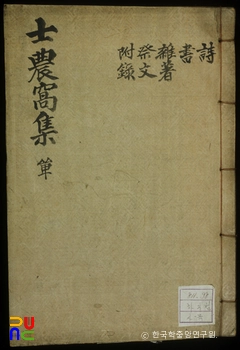 士農窩集 單
詩
書
雜著
祭文
附錄
© 한국학중앙연구원